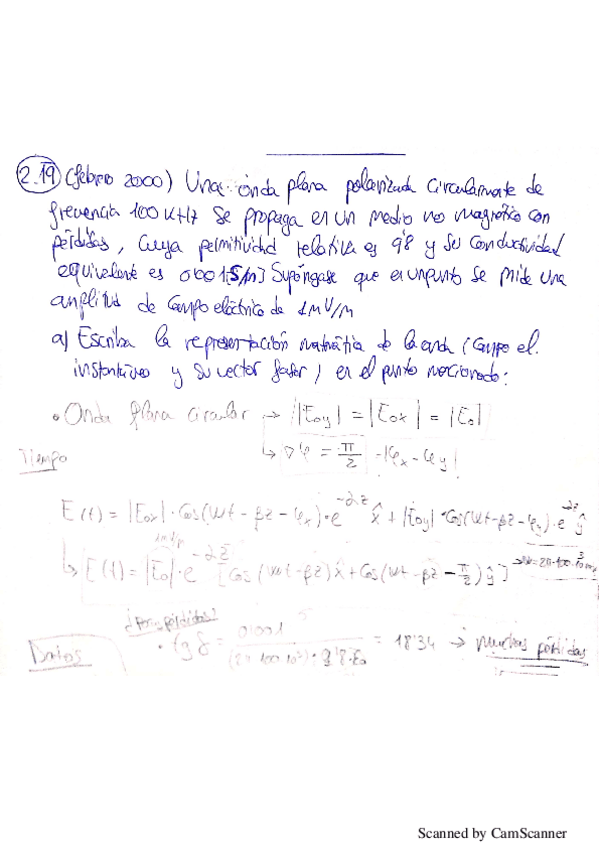 2.19 (febrero 2000) Una onda plana polarizada circularmente de
frecuencia 100 KHz se propaga en un medio no magnético con
pérdidas, cuya permitividad relativa es 9'8 y su conductividad
equivalente es 0'001 [S/m] Supóngase que en un punto se mide una
amplitud de campo eléctrico de 1mV/m
a) Escriba la representación matemática de la onda (campo el.
instantáneo y su vector fasor) en el punto mencionado:
• Onda plana circular → |E₀y| = |E₀x| = |E₀|
↳ ∇φ = π/2 - |φx - φy|
Tiempo
E(t) = |E₀x|·cos(wt - βz - φx)·e^-αz x̂ + |E₀y|·cos(wt - βz - φy)·e^-αz ŷ
↳ E(t) = |E₀|·e^-αz [cos(wt - βz)x̂ + cos(wt - βz - π/2)ŷ]
Datos
• tg δ = 0'001 / (2π·100·10³)·9'8·ε₀ = 18'34 → muchas pérdidas
Scanned by CamScanner